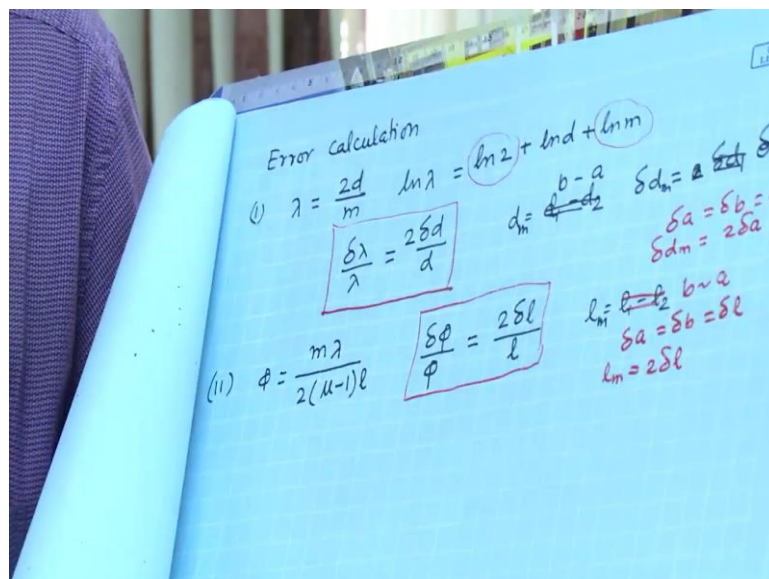 Error calculation
(1) λ = 2d/m   lnλ = ln2 + lnd + lnm
δλ/λ = 2δd/d
dm = b - a
δdm =
δa = δb =
δdm = 2δa
(11) φ = mλ/2(μ-1)l
δφ/φ = 2δl/l
lm = b ~ a
δa = δb = δl
lm = 2δl